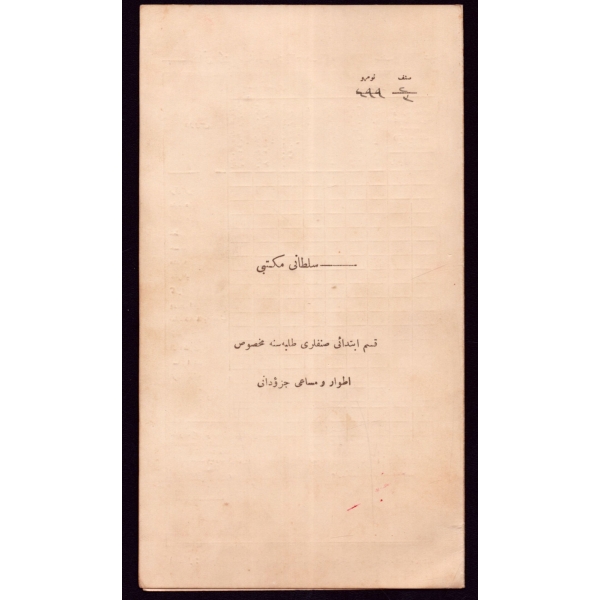 صنف نومرو
ــــــ سلطانی مکتبی
قسم ابتدائی صنفلری طلبه‌سنه مخصوص
اطوار و مساعی جزؤدانی